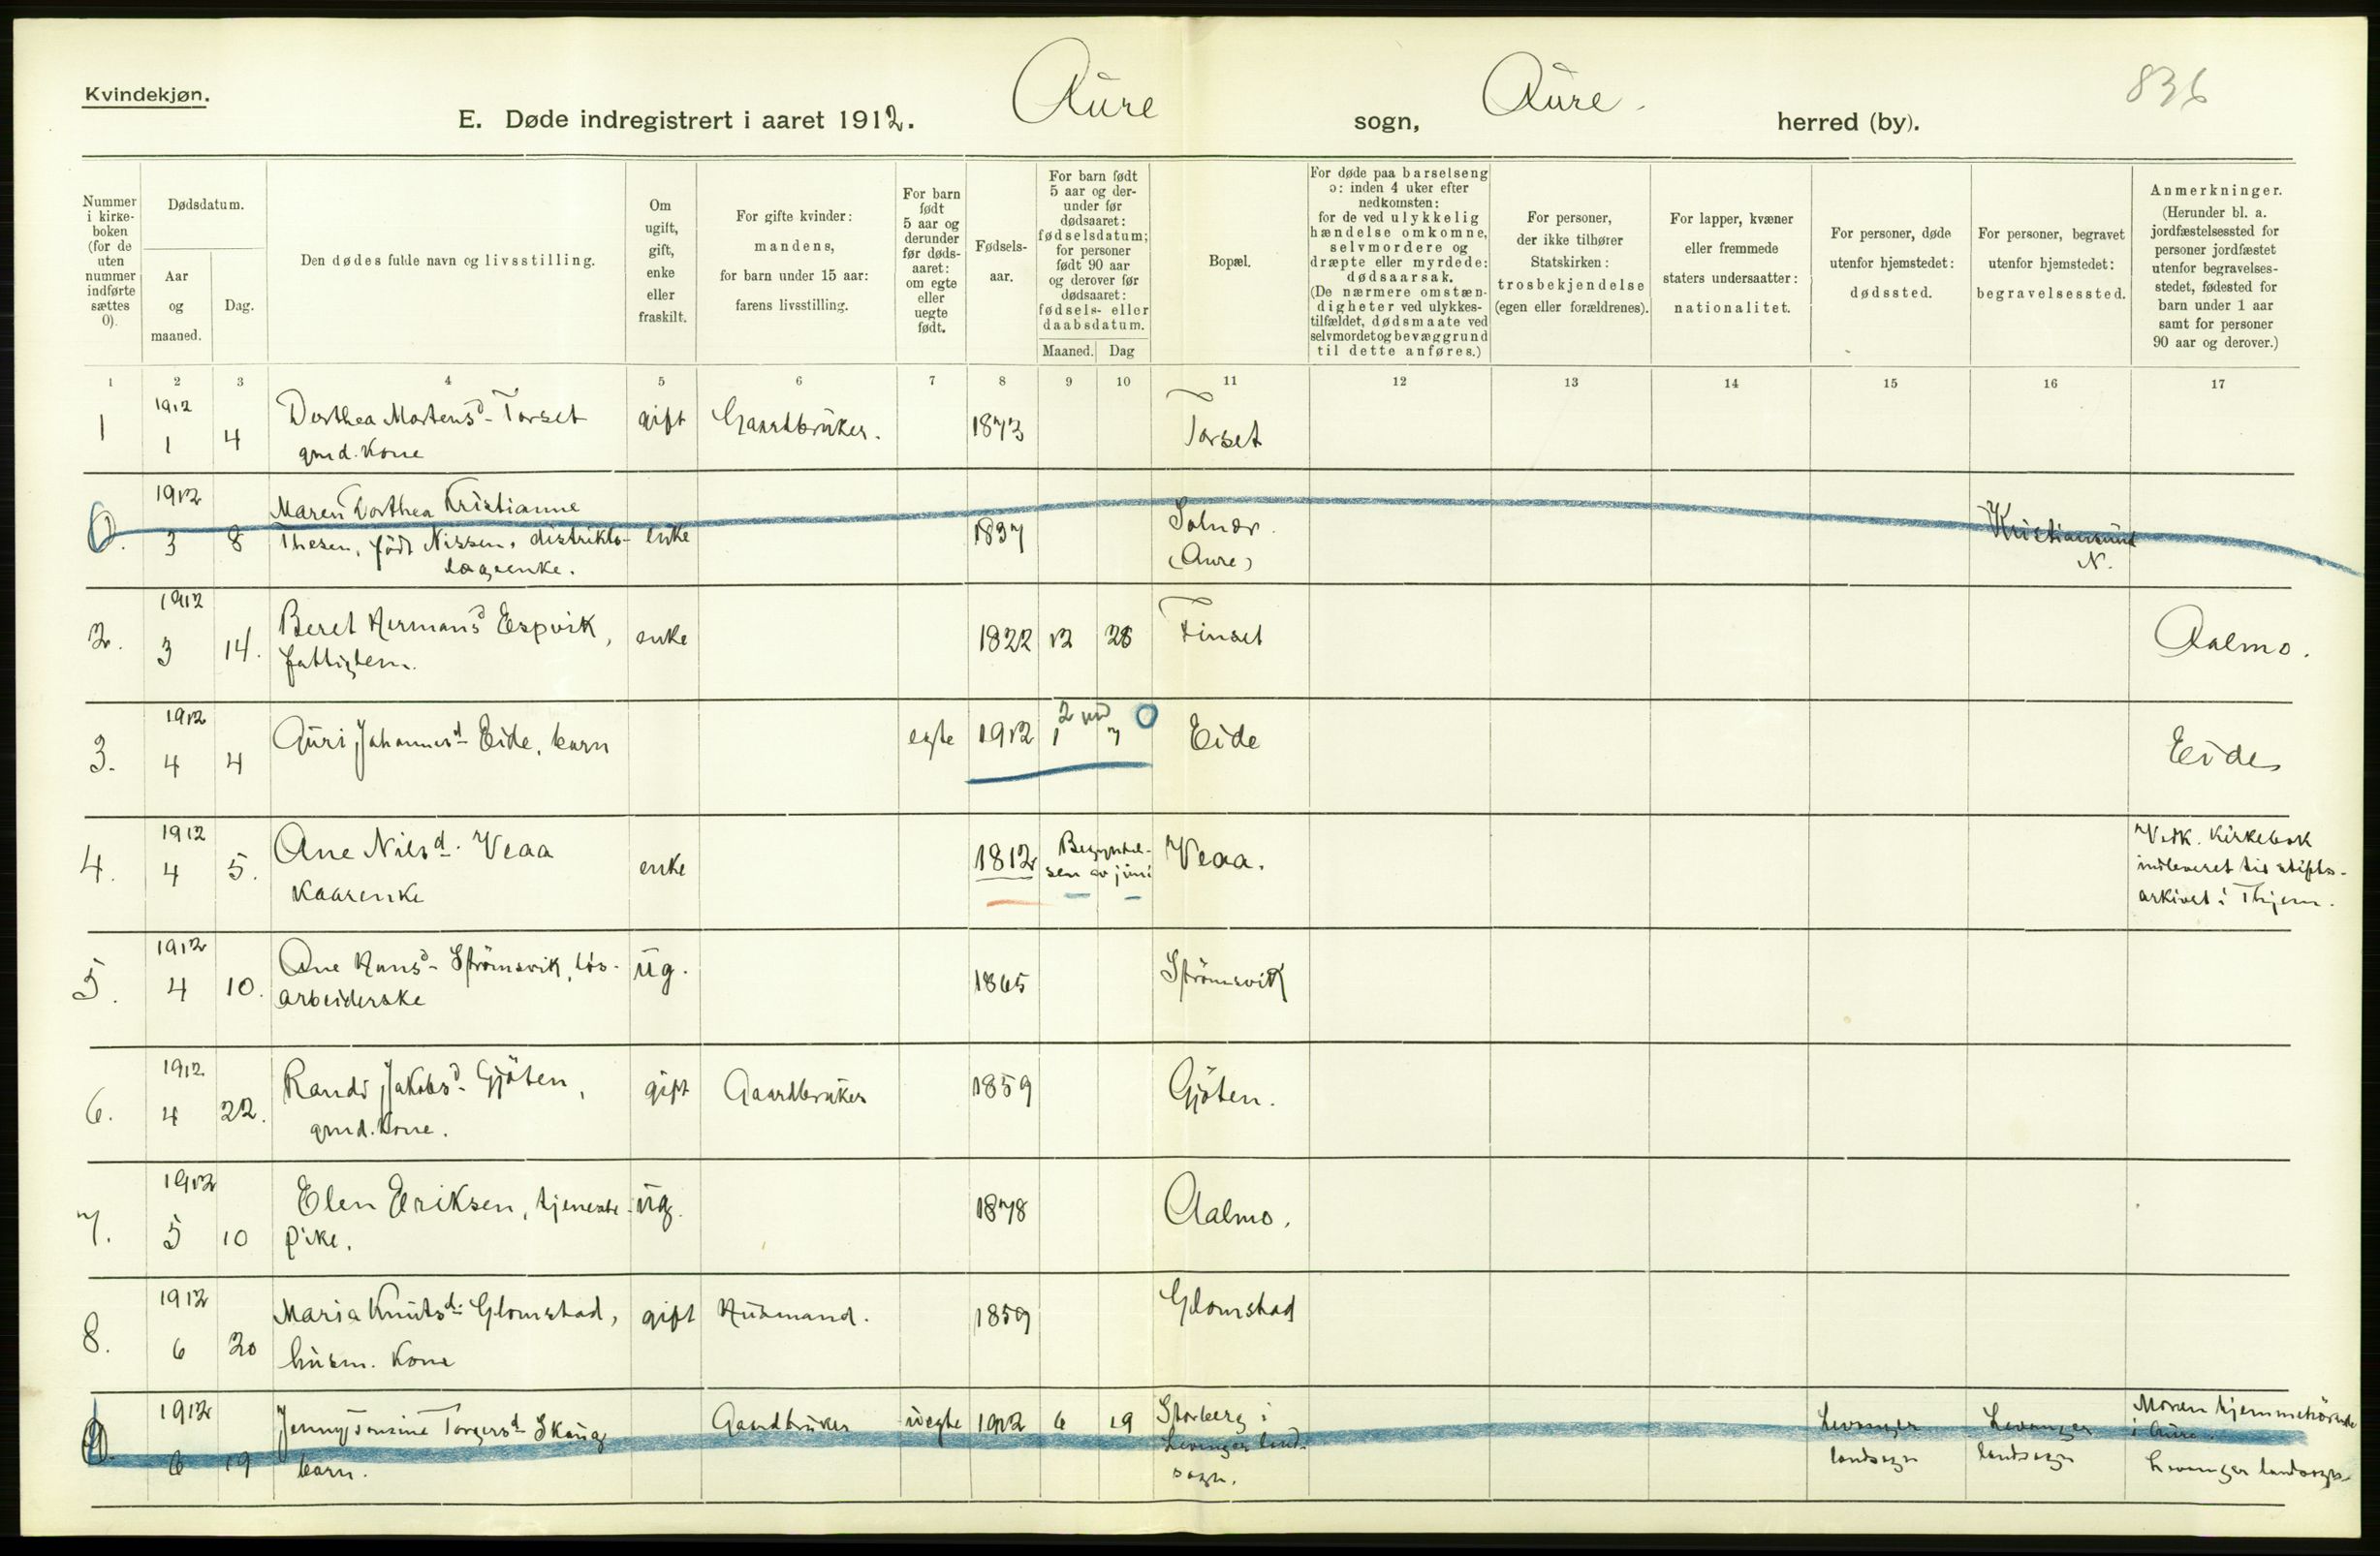 Kvindekjøn.
E. Døde indregistrert i aaret 1912. Aure sogn, Aure. herred (by).
836
Nummer
i kirke-
boken
(for de
uten
nummer
indførte
sættes
0).
Dødsdatum.
Aar
og
maaned.
Dag.
Den dødes fulde navn og livsstilling.
Om
ugift,
gift,
enke
eller
fraskilt.
For gifte kvinder:
mandens,
for barn under 15 aar:
farens livsstilling.
For barn
født
5 aar og
derunder
før døds-
aaret:
om egte
eller
uegte
født.
Fødsels-
aar.
For barn født
5 aar og der-
under før
dødsaaret:
fødselsdatum;
for personer
født 90 aar
og derover før
dødsaaret:
fødsels- eller
daabsdatum.
Maaned. Dag
Bopæl.
For døde paa barselseng
ɔ: inden 4 uker efter
nedkomsten:
for de ved ulykkelig
hændelse omkomne,
selvmordere og
dræpte eller myrdede:
dødsaarsak.
(De nærmere omstæn-
digheter ved ulykkes-
tilfældet, dødsmaate ved
selvmordet og bevæggrund
til dette anføres.)
For personer,
der ikke tilhører
Statskirken:
trosbekjendelse
(egen eller forældrenes).
For lapper, kvæner
eller fremmede
staters undersaatter:
nationalitet.
For personer, døde
utenfor hjemstedet:
dødssted.
For personer, begravet
utenfor hjemstedet:
begravelsessted.
Anmerkninger.
(Herunder bl. a.
jordfæstelsessted for
personer jordfæstet
utenfor begravelses-
stedet, fødested for
barn under 1 aar
samt for personer
90 aar og derover.)
1 2 3 4 5 6 7 8 9 10 11 12 13 14 15 16 17
1912
1 1 4 Dorthea Martensd. Torset gift Gaardbruker. 1873 Torset
gmd. kone
1912
0. 3 8 Maren Dorthea Kristianne
Thesen, född Nissen, distrikts- enke 1837 Kristiansund
lægeenke. (Aure) N.
1912
2. 3 14. Beret Hermansd Espvik, enke 1822 12 28 Finset Aalmo.
fattiglem.
1912 2 md 0
3. 4 4 Guri Johannesd. Eide, barn egte 1912 1 7 Eide Eide
1912
4. 4 5. Ane Nilsd. Veaa enke 1812 Begyndel-
sen av juni Veaa.
kaarenke
Vedk. kirkebok
indleveret til stifts-
arkivet i Thjem.
1912
5. 4 10. Ane Hansd. Strömsvik, løs- ug. 1865 Strömsvik
arbeiderske
1912
6. 4 22. Randi Jakobsd. Gjöten, gift Gaardbruker 1859 Gjöten.
gmd. kone.
1912
7. 5 10 Elen Eriksen, tjeneste- ug. 1878 Aalmo.
pike.
1912
8. 6 20 Maria Knutsd. Glomstad, gift Husmand. 1859 Glomstad
husm. kone
1912
0. 6 19 Jenny Torgersd. Skaug Gaardbruker uegte 1912 6 19 Storberg i
Levanger land-
sogn.
barn.
Levanger
landsogn
Levanger
landsogn
Moren hjemmehörende
i Aure.
Levanger landsogn